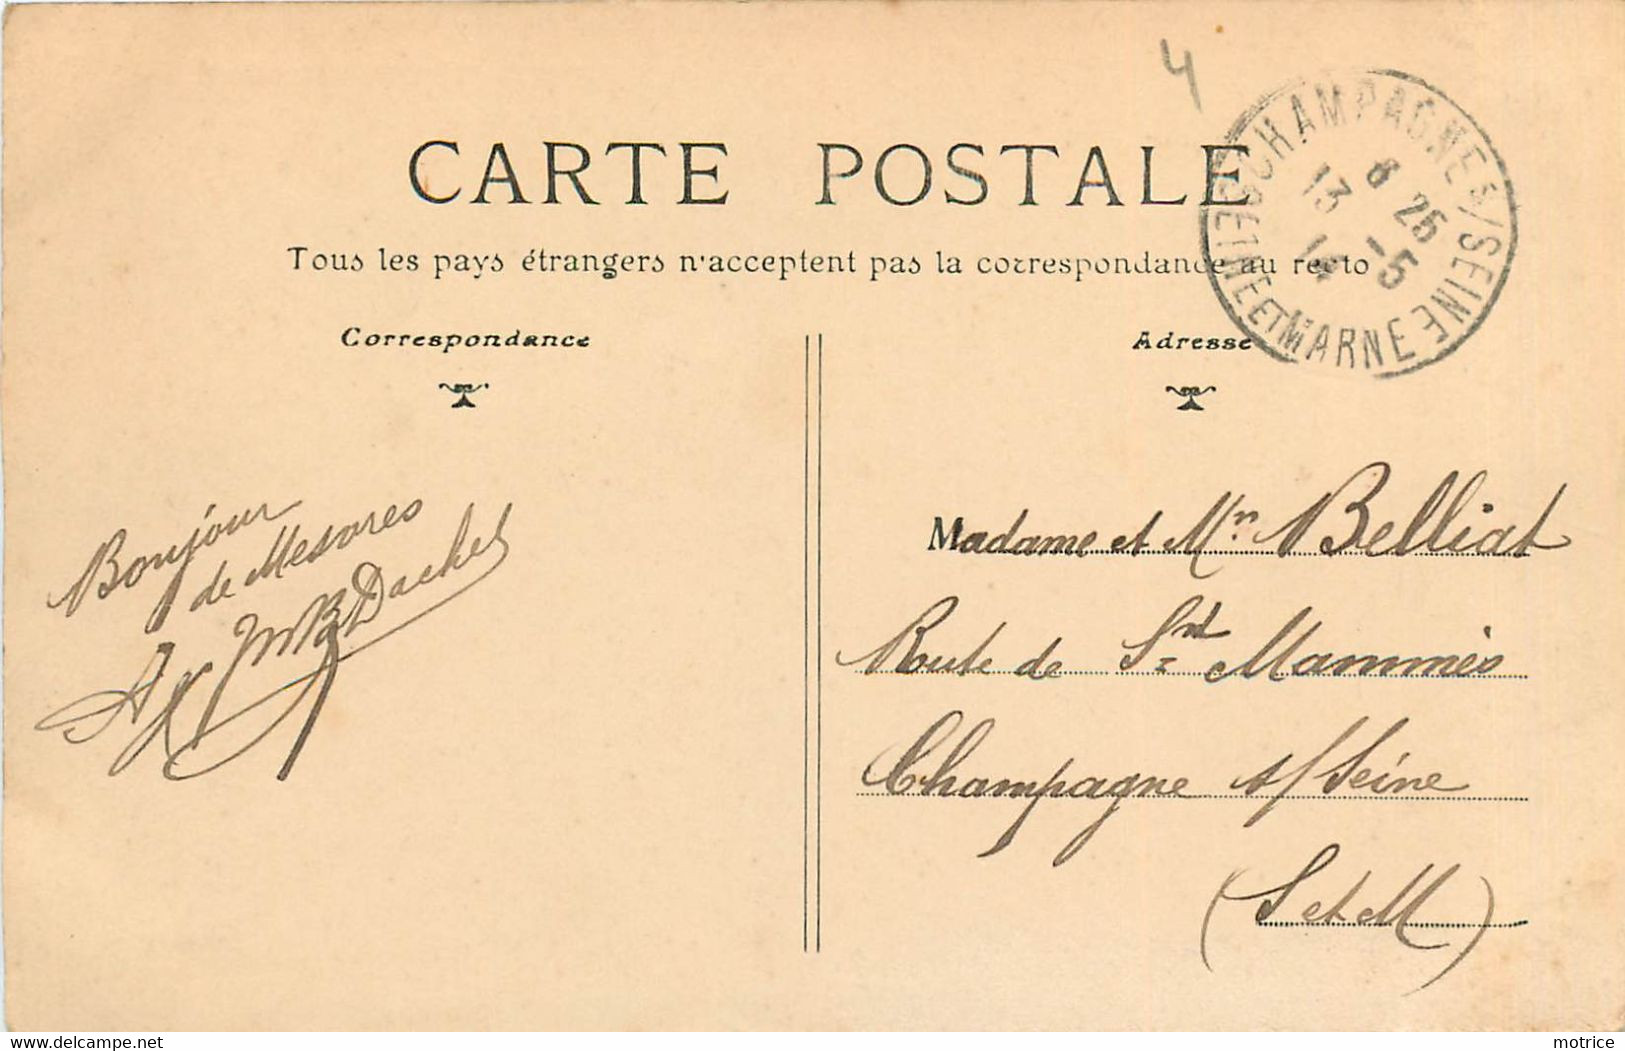 4
CARTE POSTALE
Tous les pays étrangers n'acceptent pas la correspondance au recto
CHAMPAGNE S/SEINE
6 25
13 -5
14
SEINE ET MARNE
Correspondance
Adresse
Bonjour
de Mesvres
Dachet
Madame et Mr. Belliat
Route de St Mammès
Champagne s/Seine
(S et M)
www.delcampe.net
motrice